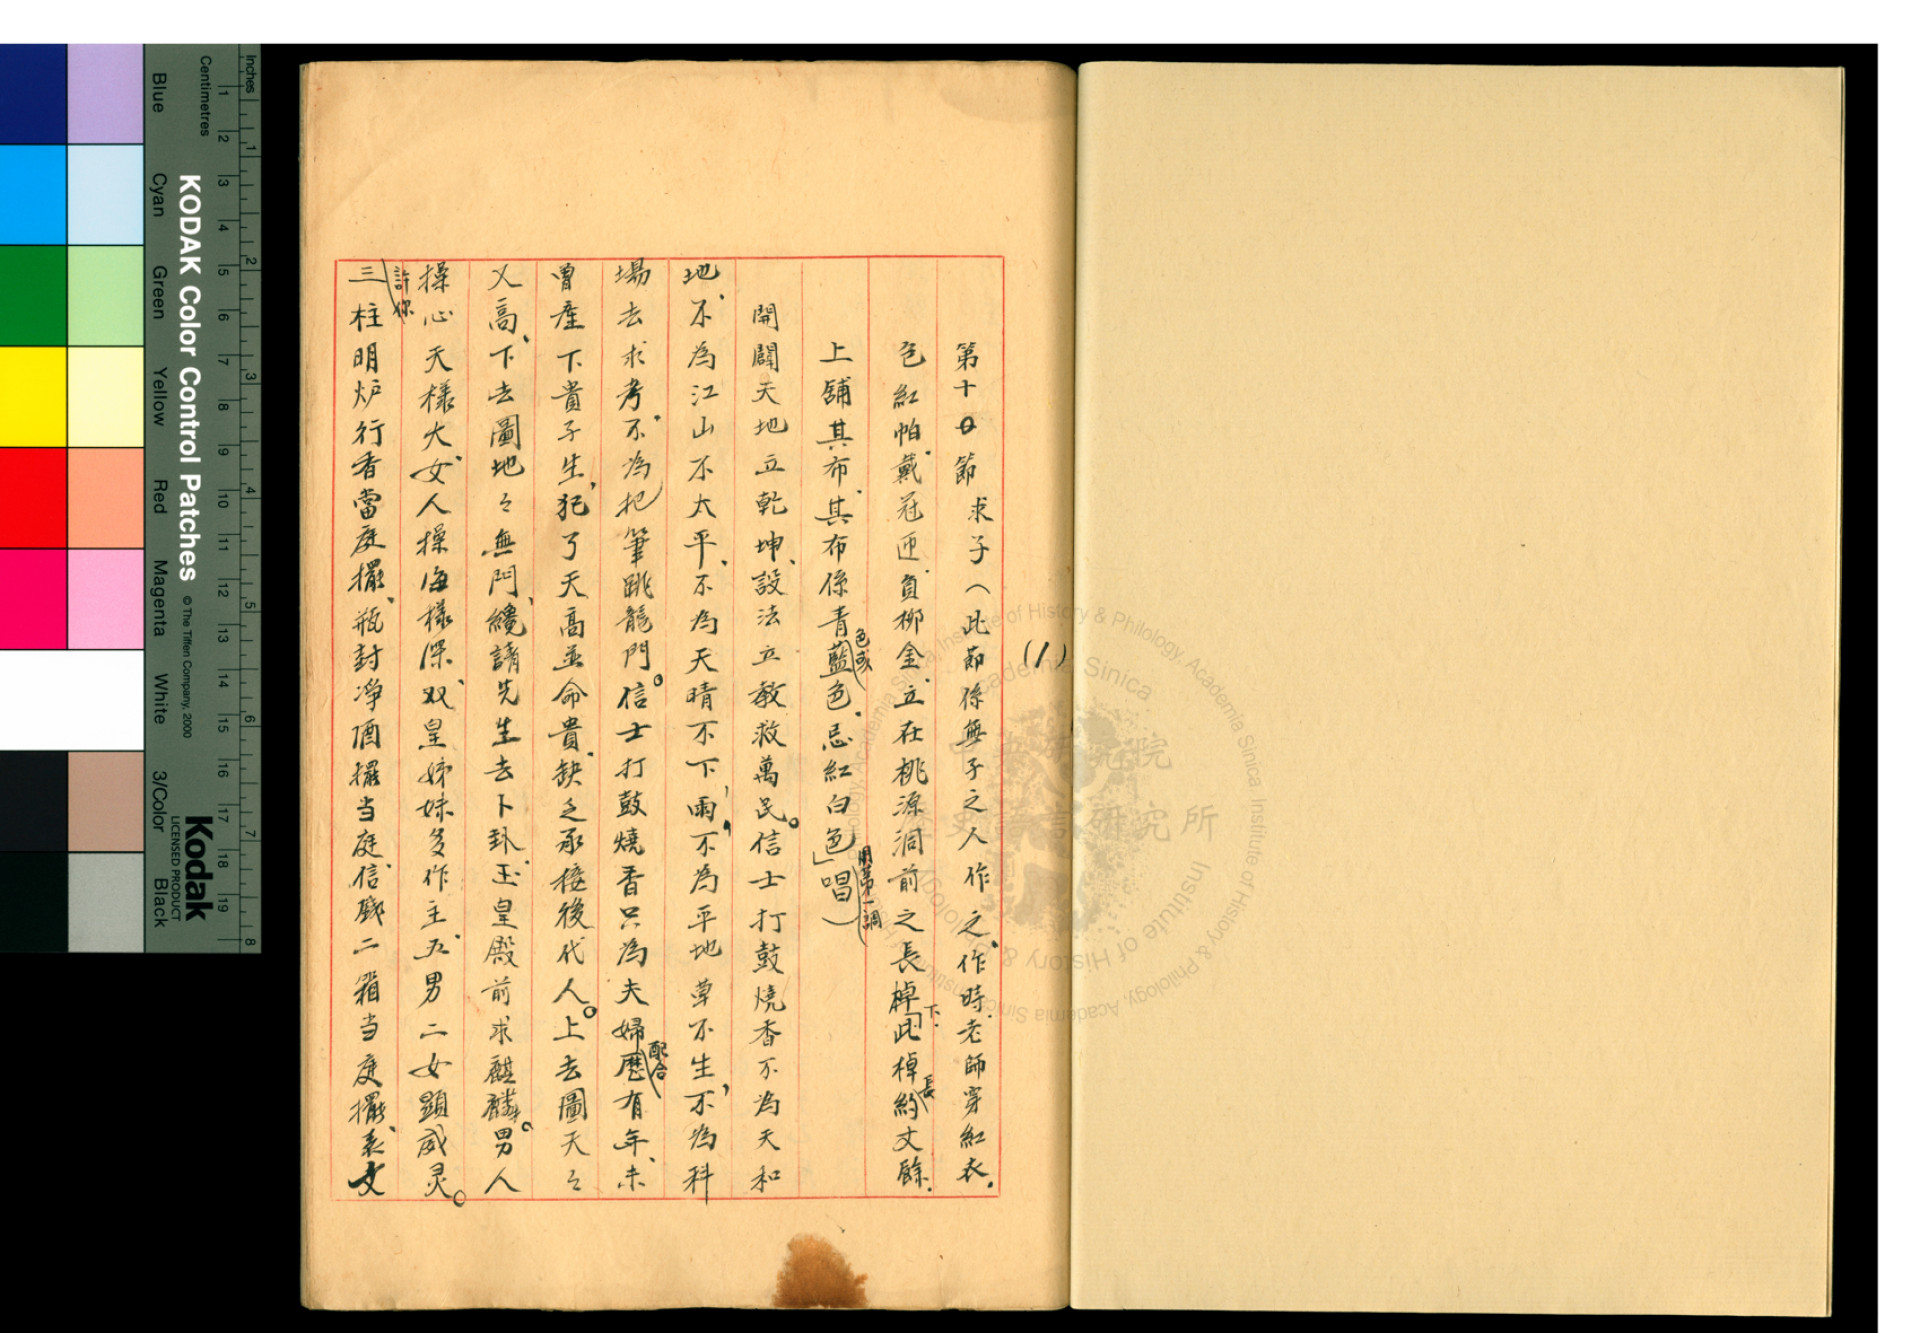 (1)
第十0節 求子（此節係無子之人作之．作時．老師穿紅衣．
色紅帕．戴冠匝．負柳金．立在桃源洞前之長棹下．「此棹約長丈餘．
上舖其布．其布係青色或藍色．忌紅白色」唱）用第一調
開闢天地立乾坤、設法立教救萬民。信士打鼓燒香不為天和
地、不為江山不太平、不為天晴不下雨，不為平地草不生，不為科
場去求考．不為把筆跳龍門。信士打鼓燒香只為夫婦配合歷有年、未
曾產下貴子生，犯了天高並命貴．缺乏承接後代人。上去圖天々
又高、下去圖地々無門、纔請先生去卜卦．玉皇殿前求麒麟。男人
操心天樣大、女人操海樣深、双皇姊妹多作主、五男二女顯威灵。
許你
三柱明炉行香當庭擺、瓶封凈酒擺当庭、信雞二箱当庭擺、表文
KODAK Color Control Patches © The Tiffen Company, 2000
Kodak
LICENSED PRODUCT
Inches
Centimetres
1 2 3 4 5 6 7 8
1 2 3 4 5 6 7 8 9 10 11 12 13 14 15 16 17 18 19
Blue Cyan Green Yellow Red Magenta White 3/Color Black
中央研究院
歷史語言研究所
Institute of History & Philology, Academia Sinica